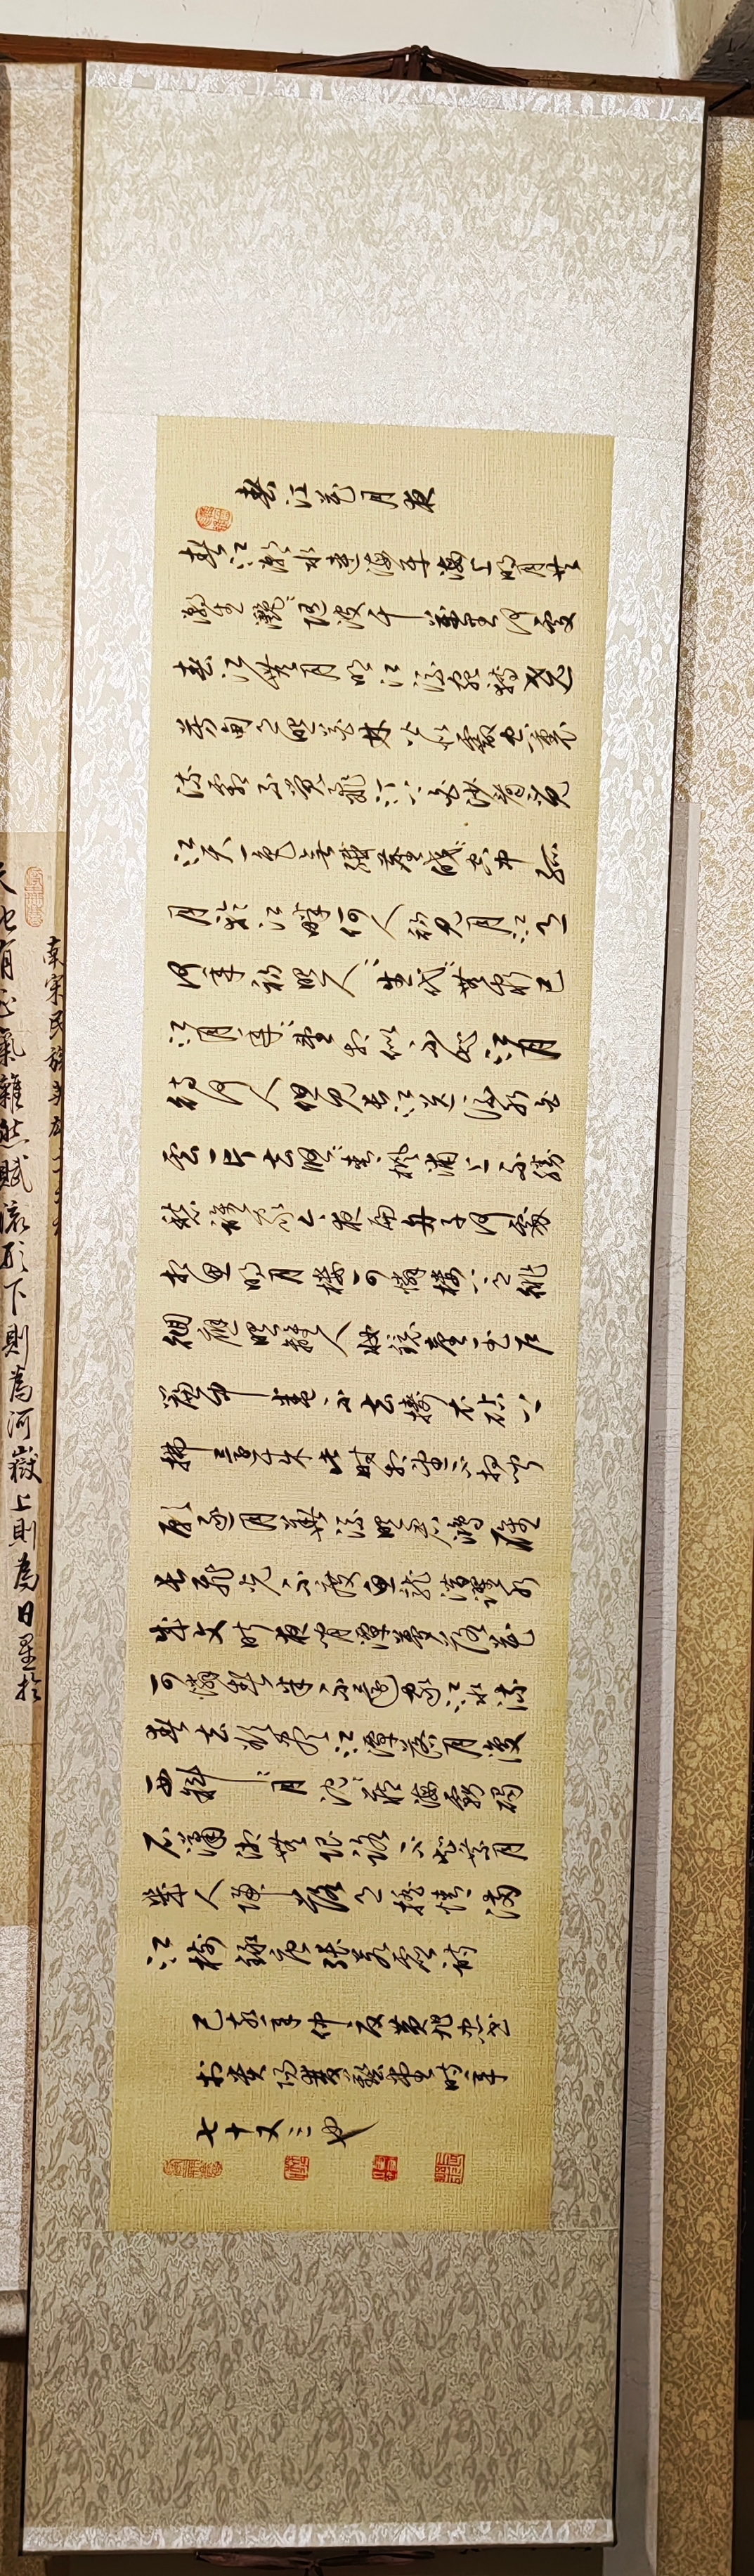 春江花月夜
春江潮水連海平海上明月共
潮生灩〻隨波千萬里何處
春江無月明江流宛轉繞
芳甸月照花林皆似霰空裏
流霜不覺飛汀上白沙看不見
江天一色無纖塵皎〻空中孤
月輪江畔何人初見月江月
何年初照人〻生代〻無窮已
江月年〻望相似不知江月
待何人但見長江送流水白
雲一片去悠〻青楓浦上不勝
愁誰家今夜扁舟子何處
相思明月樓可憐樓上月徘
徊應照離人妝鏡臺玉戶
簾中卷不去擣衣砧上
拂還來此時相望不相聞
願逐月華流照君鴻雁
長飛光不度魚龍潛躍水
成文昨夜閑潭夢落花
可憐春半不還家江水流
春去欲盡江潭落月復
西斜〻月沉〻藏海霧碣
石瀟湘無限路不知乘月
幾人歸落月搖情滿
江樹錄唐張若虛詩
己亥年仲夏黃旭書
於貴陽藝堂時年
七十又三也
天地有正氣雜然賦流形下則為河嶽上則為日星於
南宋民族英雄文天祥